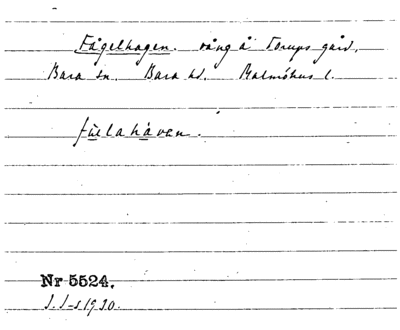 Fågelhagen. vång å Torups gård,
Bara sn. Bara hd. Malmöhus l.
fúlahávan.
Nr 5524.
1920.